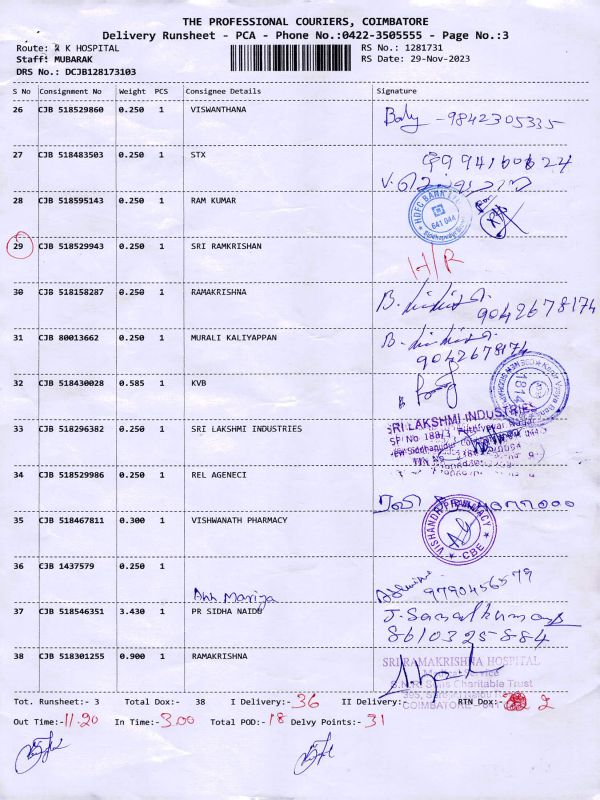 THE PROFESSIONAL COURIERS, COIMBATORE
Delivery Runsheet - PCA - Phone No.:0422-3505555 - Page No.:3
Route: R K HOSPITAL
RS No.: 1281731
Staff: MUBARAK
RS Date: 29-Nov-2023
DRS No.: DCJB128173103
S No Consignment No Weight PCS Consignee Details Signature
26 CJB 518529860 0.250 1 VISWANTHANA
Body - 9842305335
27 CJB 518483503 0.250 1 STX
28 CJB 518595143 0.250 1 RAM KUMAR
HDFC BANK LTD
641 044
29 CJB 518529943 0.250 1 SRI RAMKRISHAN
H/R
30 CJB 518158287 0.250 1 RAMAKRISHNA
9042678174
31 CJB 80013662 0.250 1 MURALI KALIYAPPAN
9042678174
32 CJB 518430028 0.585 1 KVB
33 CJB 518296382 0.250 1 SRI LAKSHMI INDUSTRIES
SRI LAKSHMI INDUSTRIES
34 CJB 518529986 0.250 1 REL AGENECI
35 CJB 518467811 0.300 1 VISHWANATH PHARMACY
PHARMACY
CBE
36 CJB 1437579 0.250 1
9790456579
37 CJB 518546351 3.430 1 PR SIDHA NAIDU
8610325884
38 CJB 518301255 0.900 1 RAMAKRISHNA
SRI RAMAKRISHNA HOSPITAL
Charitable Trust
COIMBATORE
Tot. Runsheet:- 3 Total Dox:- 38 I Delivery:- 36 II Delivery:- RTN Dox:- 2
Out Time:- 11.20 In Time:- 3.00 Total POD:- 18 Delvy Points:- 31